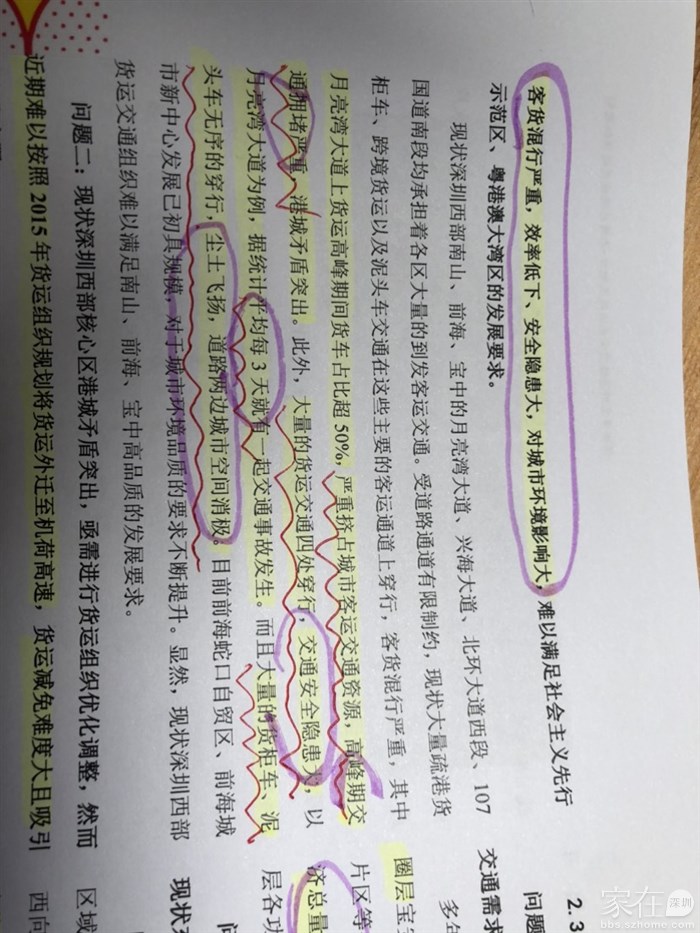 客货混行严重，效率低下、安全隐患大，对城市环境影响大，难以满足社会主义先行
示范区、粤港澳大湾区的发展要求。
现状深圳西部南山、前海、宝中的月亮湾大道、兴海大道、北环大道西段、107
国道南段均承担着各区大量的到发客运交通。受道路通道有限制约，现状大量疏港货
柜车、跨境货运以及泥头车交通在这些主要的客运通道上穿行，客货混行严重，其中
月亮湾大道上货运高峰期间货车占比超 50%，严重挤占城市客运交通资源，高峰期交
通拥堵严重，港城矛盾突出。此外，大量的货运交通四处穿行，交通安全隐患大，以
月亮湾大道为例，据统计平均每 3 天就有一起交通事故发生。而且大量的货柜车、泥
头车无序的穿行，尘土飞扬，道路两边城市空间消极。目前前海蛇口自贸区、前海城
市新中心发展已初具规模，对于城市环境品质的要求不断提升。显然，现状深圳西部
货运交通组织难以满足南山、前海、宝中高品质的发展要求。
问题二：现状深圳西部核心区港城矛盾突出，亟需进行货运组织优化调整，然而
近期难以按照 2015 年货运组织规划将货运外迁至机荷高速，货运减免难度大且吸引
2.3
问题
交通需求
多年
圈层宝
片区等
济总量
层各功
问
现状
区域
西向
家在深圳
bbs.szhome.com